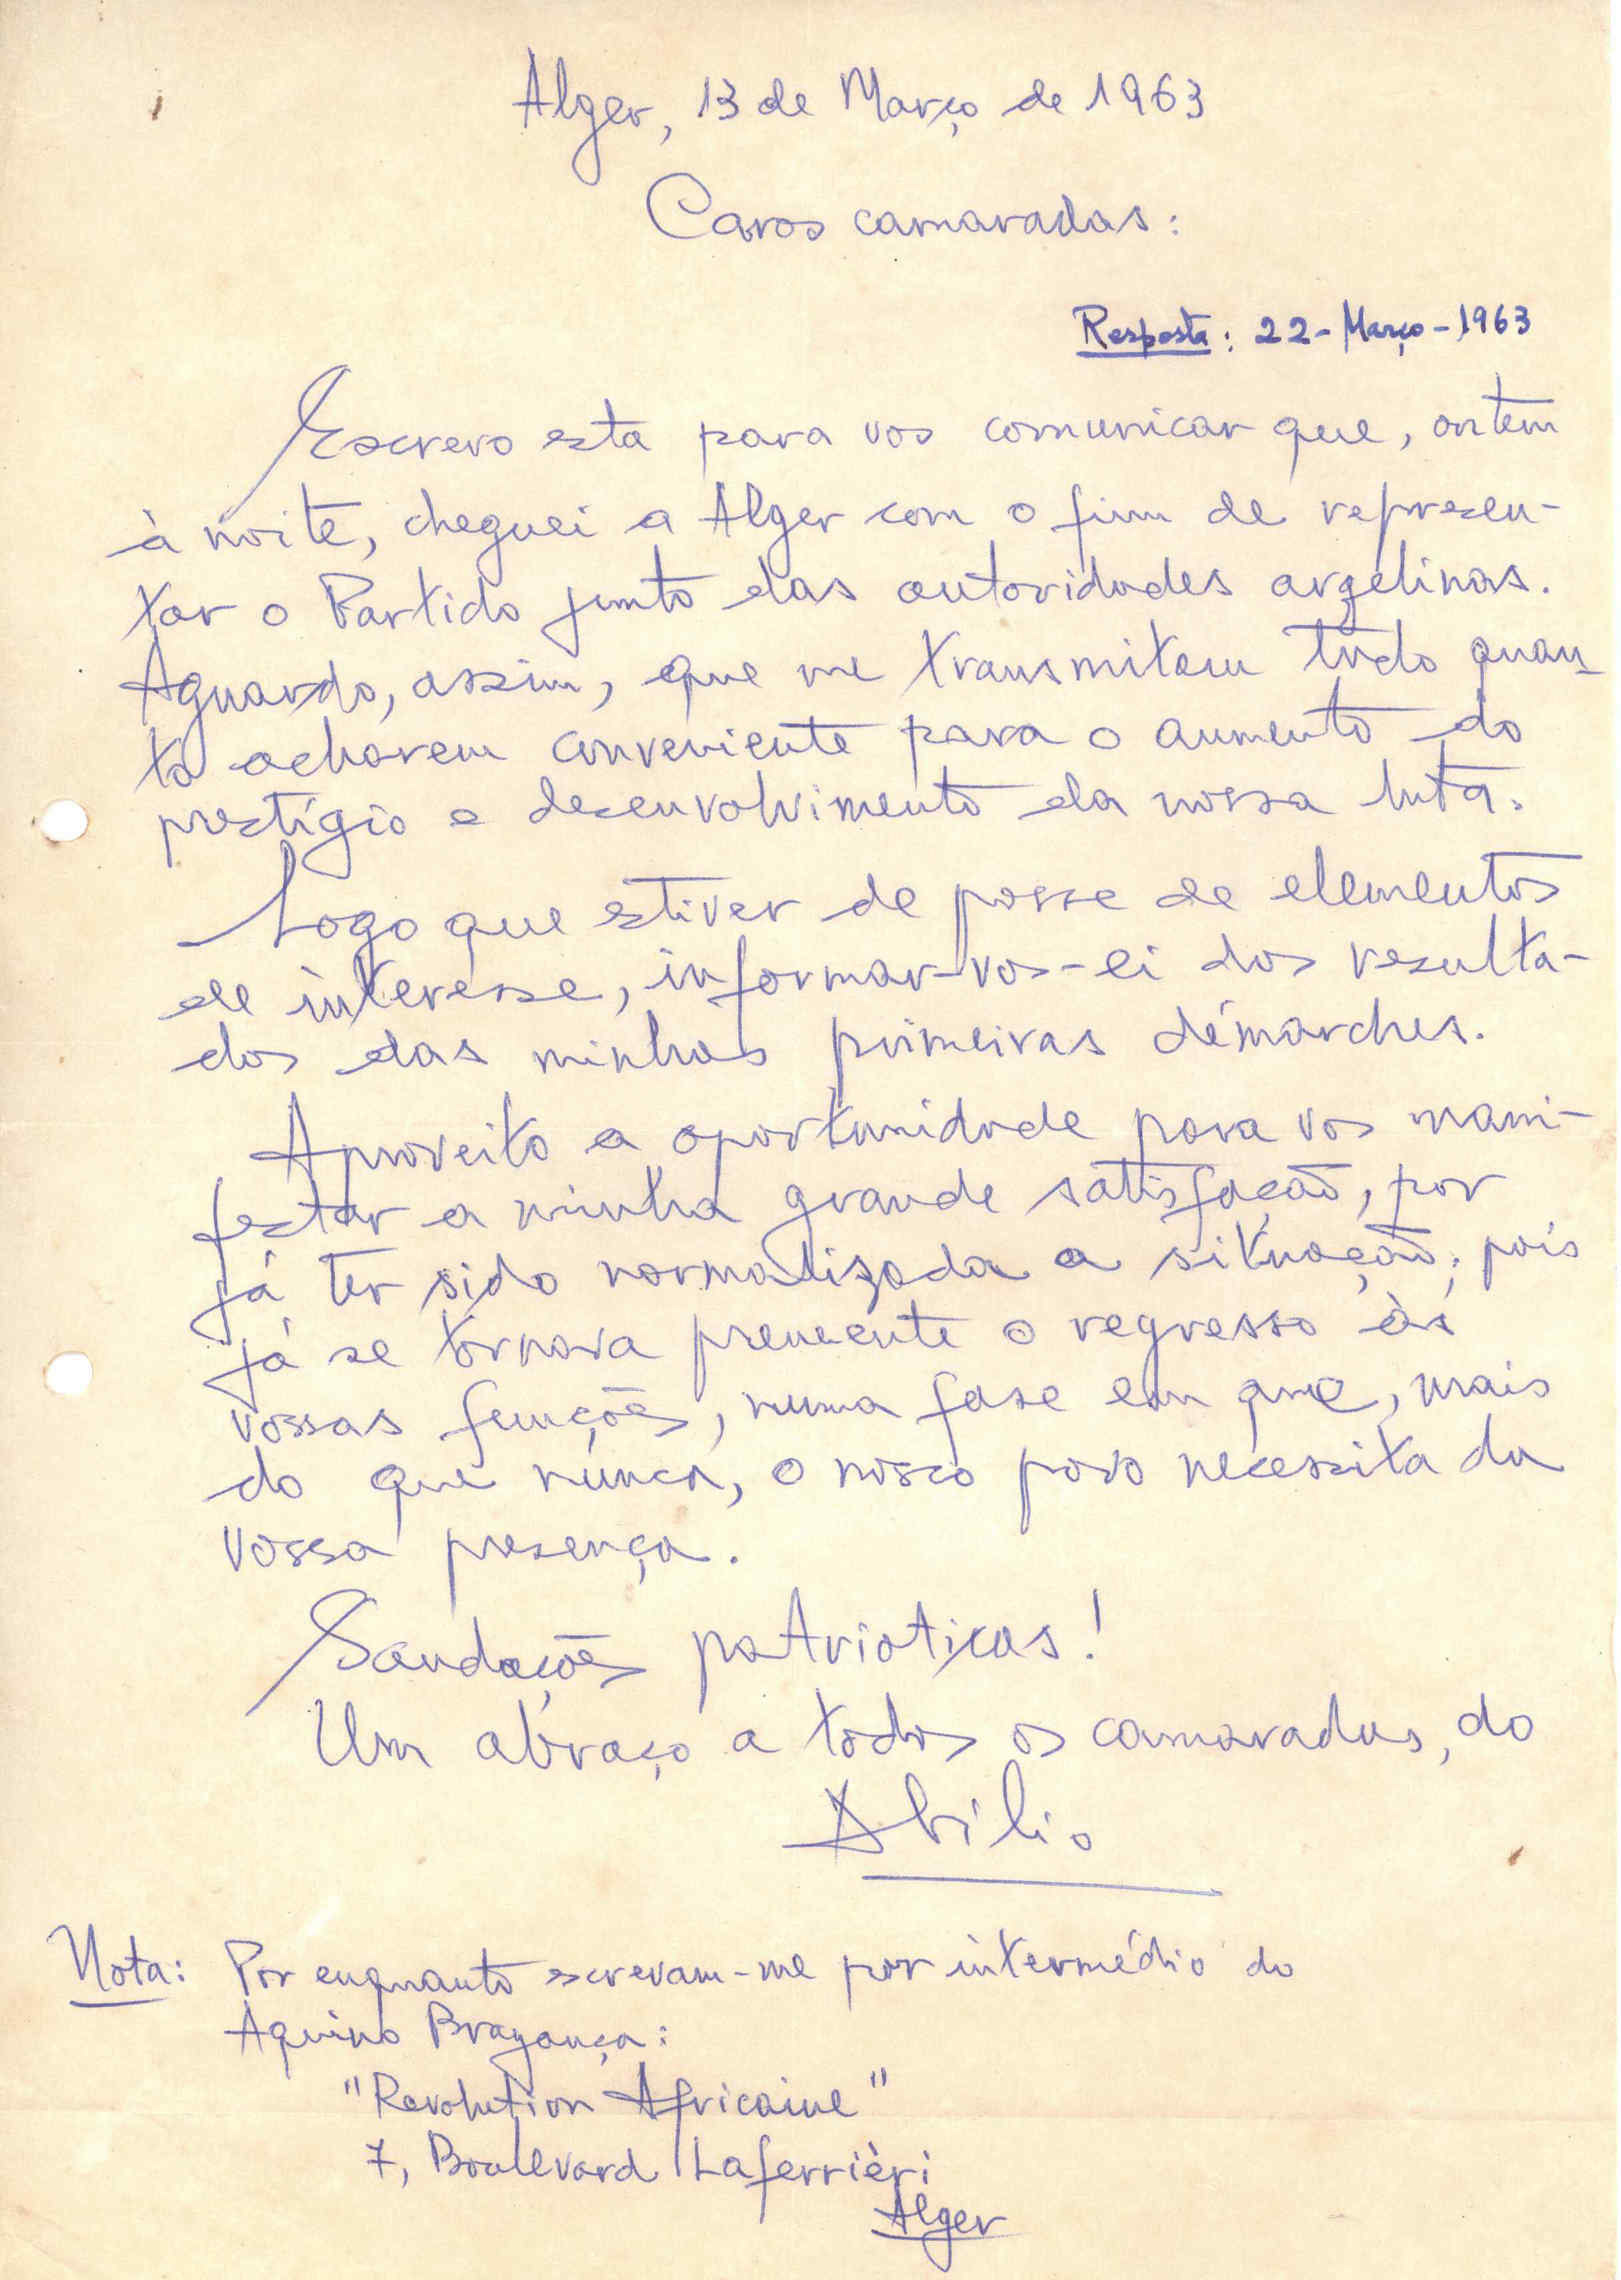 Alger, 13 de Março de 1963
Caros camaradas:
Resposta: 22-Março-1963
Escrevo esta para vos comunicar que, ontem
à noite, cheguei a Alger com o fim de represen-
tar o Partido junto das autoridades argelinas.
Aguardo, assim, que me transmitam tudo quan-
to acharem conveniente para o aumento do
prestígio e desenvolvimento da nossa luta.
Logo que estiver de posse de elementos
de interesse, informar-vos-ei dos resulta-
dos das minhas primeiras démarches.
Aproveito a oportunidade para vos mani-
festar a minha grande satisfação, por
já ter sido normalizada a situação; pois
já se tornava premente o regresso às
vossas funções, numa fase em que, mais
do que nunca, o nosso povo necessita da
vossa presença.
Saudações patrioticas!
Um abraço a todos os camaradas, do
Abilio
Nota: Por enquanto escrevam-me por intermédio do
Aquino Bragança:
"Revolution Africaine"
7, Boulevard Laferrièri
Alger